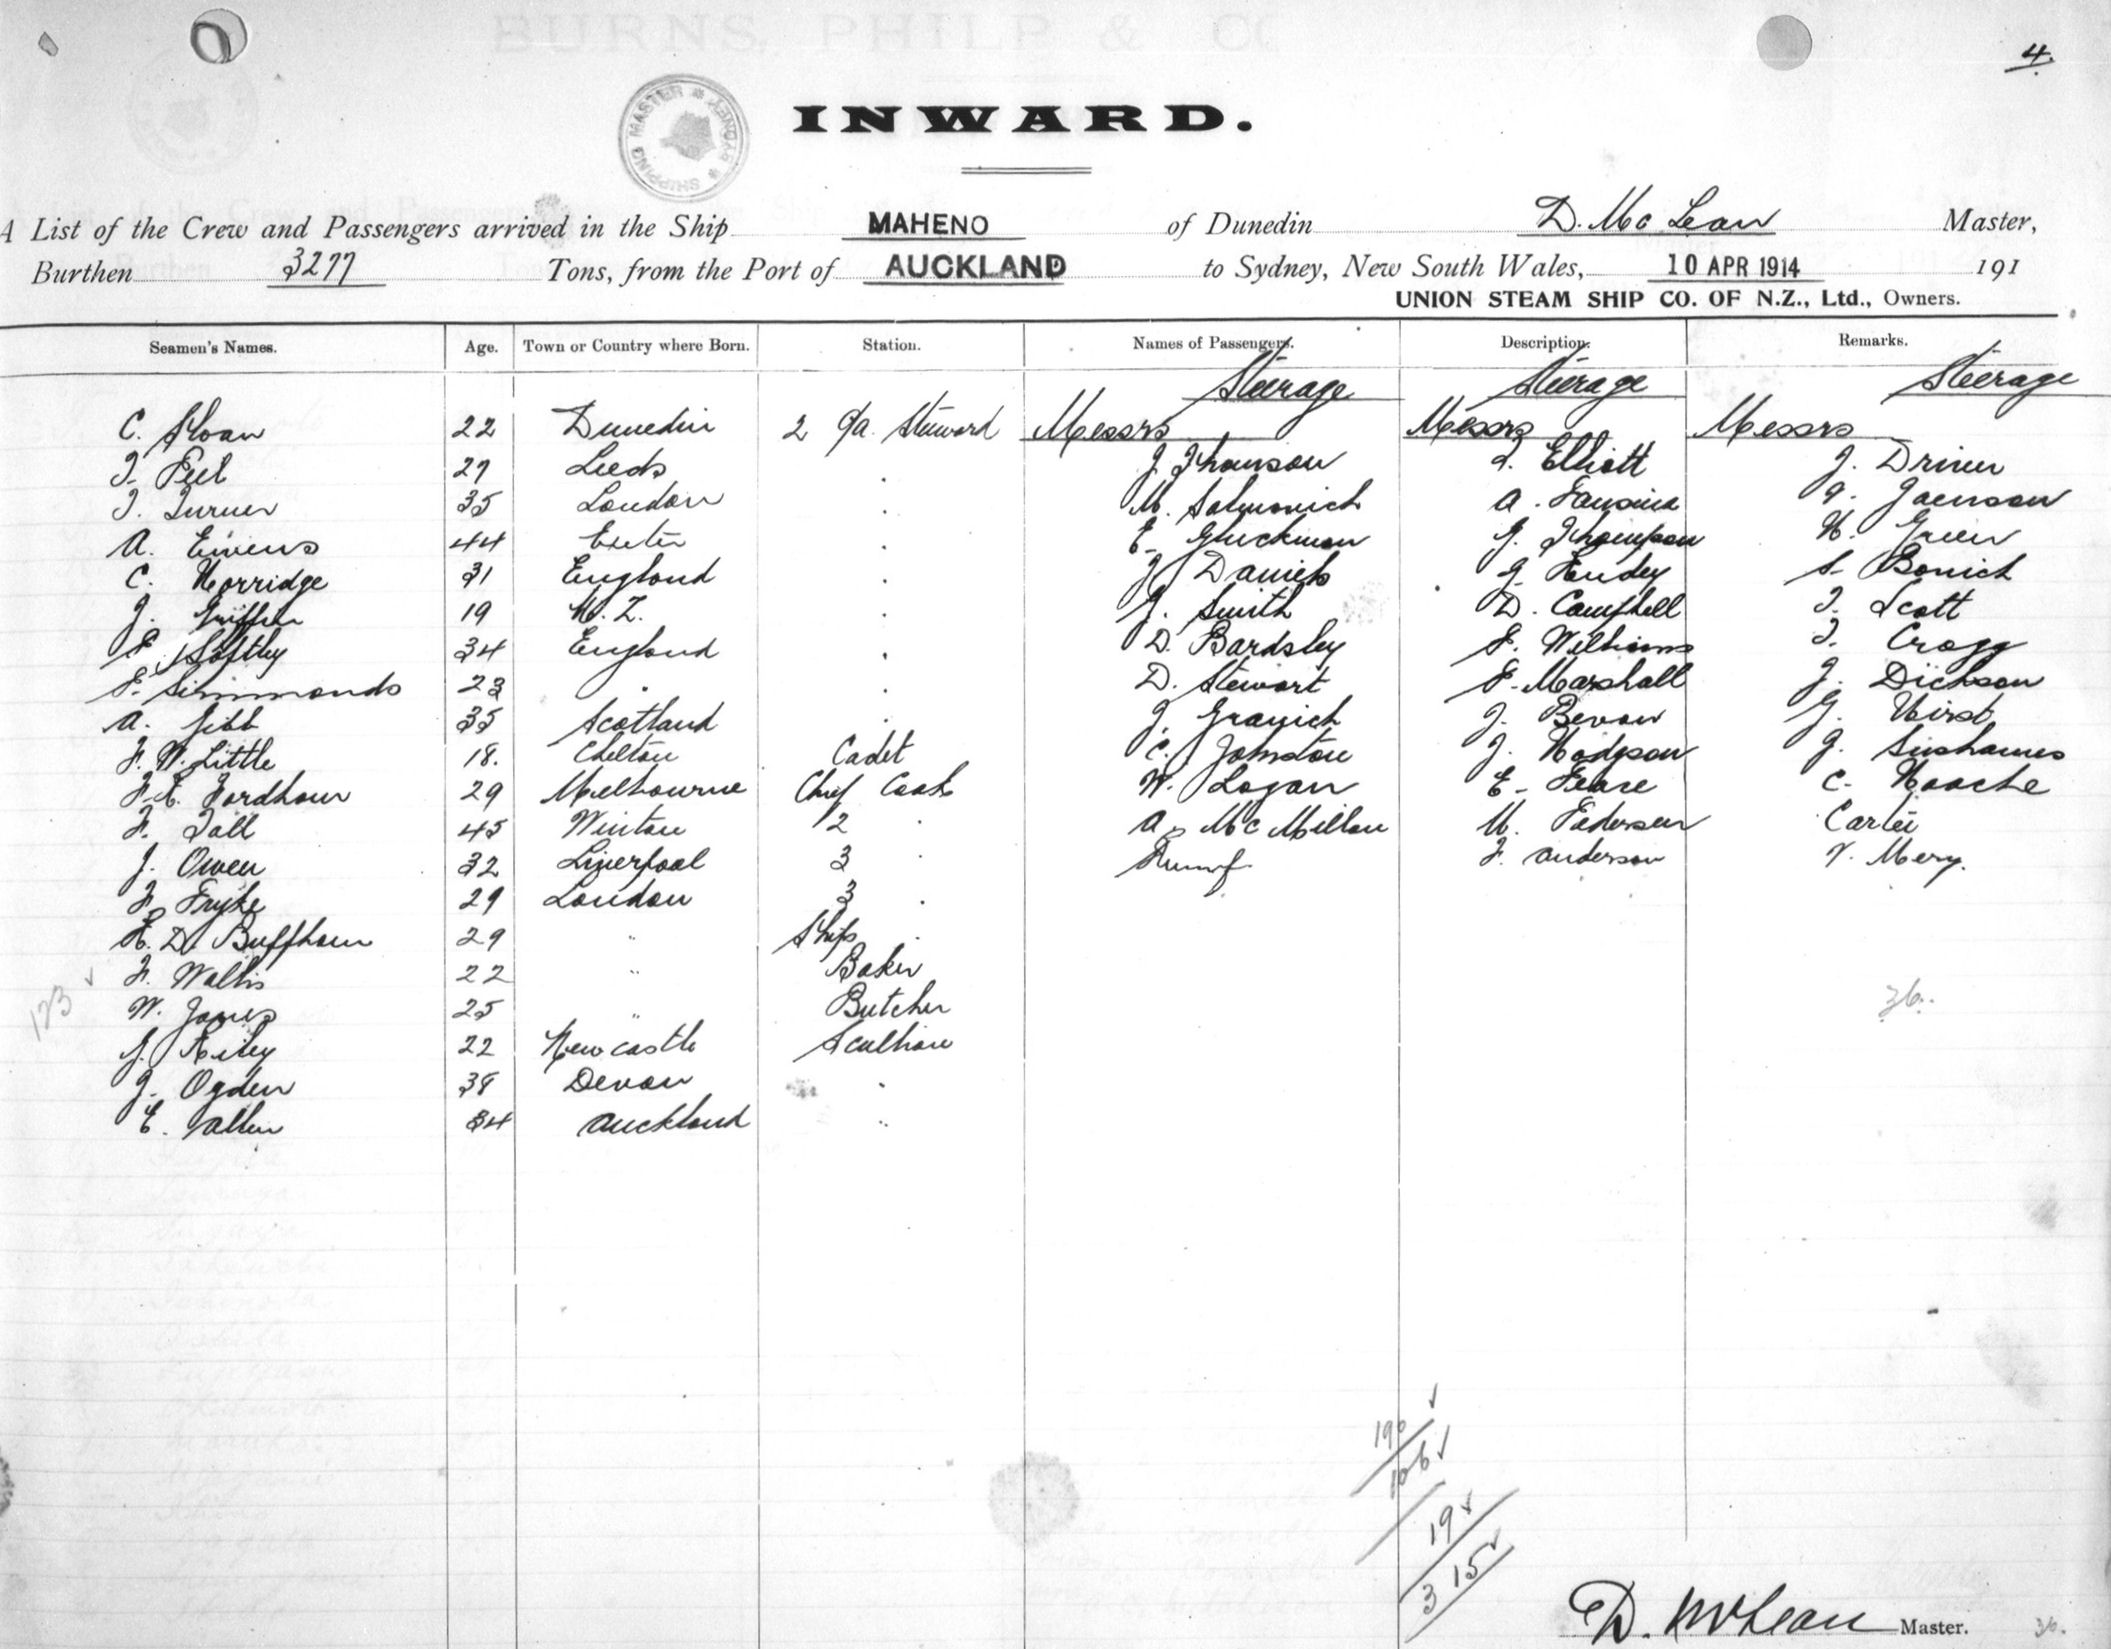 BURNS, PHILP & CO
4.
SHIPPING MASTER SYDNEY
INWARD.
A List of the Crew and Passengers arrived in the Ship MAHENO of Dunedin D. Mc Lean Master,
Burthen 3277 Tons, from the Port of AUCKLAND to Sydney, New South Wales, 10 APR 1914 191
UNION STEAM SHIP CO. OF N.Z., Ltd., Owners.
Seamen's Names. Age. Town or Country where Born. Station. Names of Passengers. Description. Remarks.
Steerage Steerage Steerage
C. Sloan 22 Dunedin 2 Steward Messrs Messrs Messrs
T. Peel 27 Leeds J. Thomson Elliott J. Driver
T. Turner 35 London M. A.
A. Ewens 44 Exeter E. Gluckman J. Thompson H. Green
C. Horridge 31 England J. Daniels S. Bonich
J. Griffin 19 N.Z. J. Smith D. Campbell T. Scott
Softley 34 England D. Bardsley F. Williams T. Cragg
F. Simmonds 23 " D. Stewart F. Marshall J. Dickson
A. Gibb 35 Scotland J. Granich J. Bevan G. Hirst
F. W. Little 18. Cadet C. Johnston J. Hodgson J.
F. E. Fordham 29 Melbourne Chief Cook W. Logan E. Pease C. Hooche
F. Tall 45 Winton 2 " A. McMillan M. Pedersen Carter
J. Owen 32 Liverpool 3 " F. Anderson V. Mery.
F. Fryke 29 London 3 "
H. D. Buffham 29 " Ships "
F. Wallis 22 " Baker
W. Jones 25 " Butcher 36.
123
J. Riley 22 Newcastle Scullion
J. Ogden 38 Devon "
E. Allen 34 Auckland "
190
106
19
315
D. McLean Master. 36.